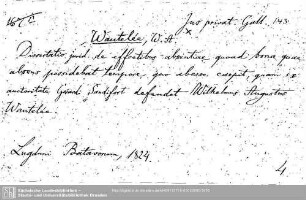 Jus privat. Gall. 143.
Wautelée, W. A.
Dissertatio jurid. de effectibus absentiae quoad bona, quae
absens possidebat tempore, quo abesse coepit, quam ex
autoritate Gerard Sandifort defendet Wilhelmus Augustus
Wautelée.
Lugduni Batavorum, 1824.
4
Sächsische Landesbibliothek -
Staats- und Universitätsbibliothek Dresden